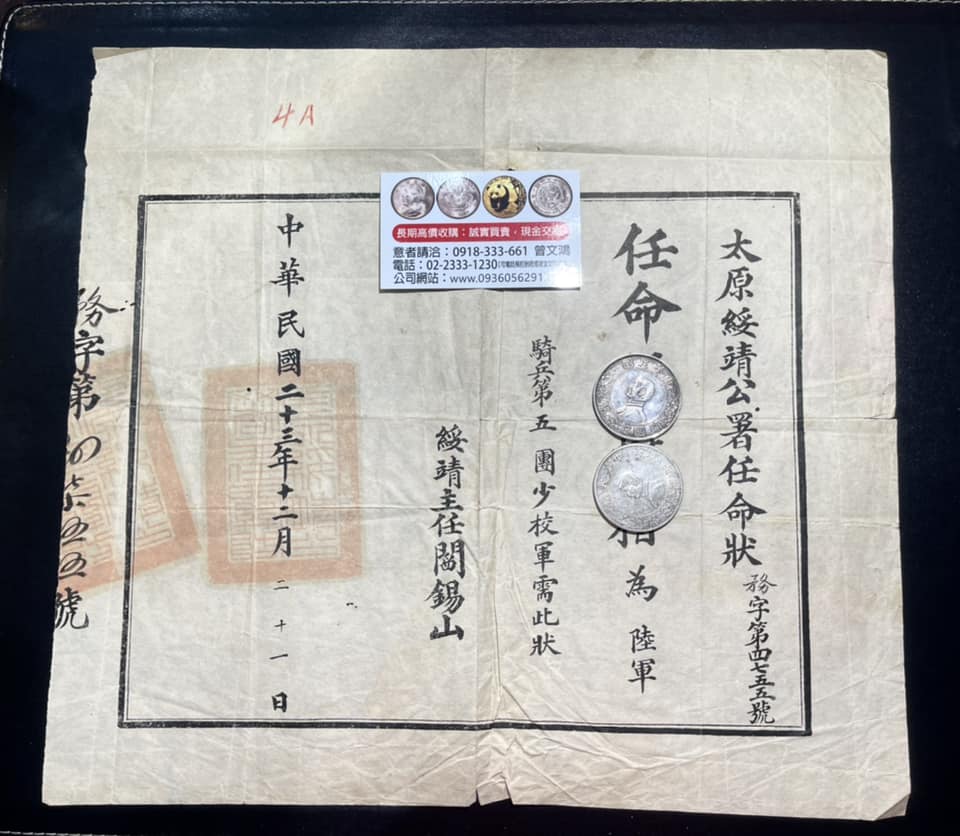 4A
長期高價收購：誠實買賣，現金交易
意者請洽：0918-333-661 曾文鴻
電話：02-2333-1230
公司網站：www.0936056291
太原綏靖公署任命狀
務字第四七五五號
任命
為陸軍
騎兵第五團少校軍需此狀
綏靖主任閻錫山
中華民國二十三年十二月二十一日
務字第四柒五五號